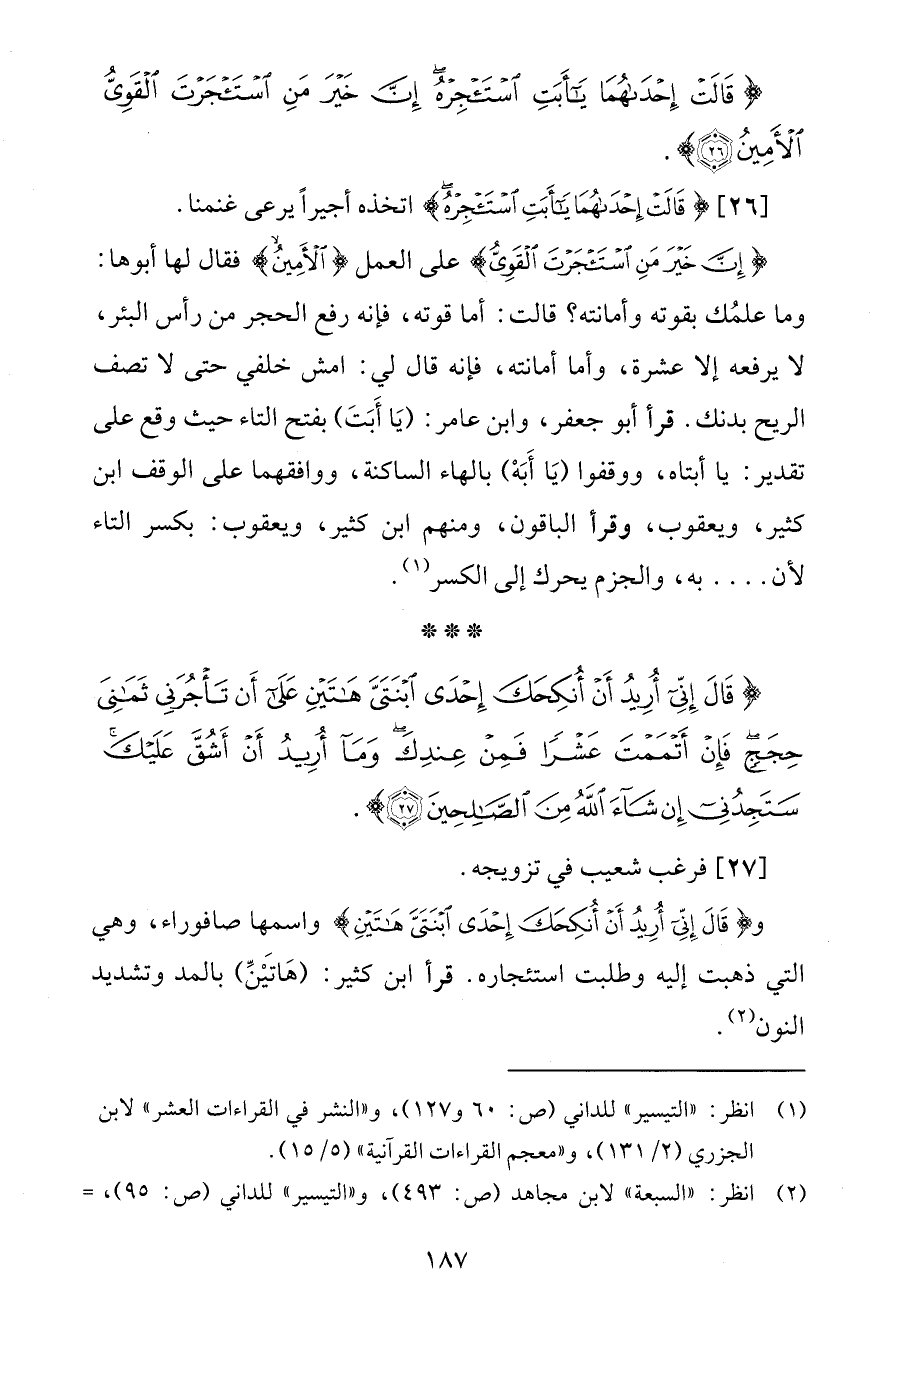 ﴿ قَالَتْ إِحْدَىٰهُمَا يَٰٓأَبَتِ ٱسْتَـْٔجِرْهُ ۖ إِنَّ خَيْرَ مَنِ ٱسْتَـْٔجَرْتَ ٱلْقَوِىُّ
ٱلْأَمِينُ ۝٢٦﴾ .
[٢٦] ﴿ قَالَتْ إِحْدَىٰهُمَا يَٰٓأَبَتِ ٱسْتَـْٔجِرْهُ ۖ﴾ اتخذه أجيراً يرعى غنمنا.
﴿ إِنَّ خَيْرَ مَنِ ٱسْتَـْٔجَرْتَ ٱلْقَوِىُّ﴾ على العمل ﴿ ٱلْأَمِينُ ۙ﴾ فقال لها أبوها:
وما علمُك بقوته وأمانته؟ قالت: أما قوته، فإنه رفع الحجر من رأس البئر،
لا يرفعه إلا عشرة، وأما أمانته، فإنه قال لي: امش خلفي حتى لا تصف
الريح بدنك. قرأ أبو جعفر، وابن عامر: (يَا أَبَتَ) بفتح التاء حيث وقع على
تقدير: يا أبتاه، ووقفوا (يَا أَبَهْ) بالهاء الساكنة، ووافقهما على الوقف ابن
كثير، ويعقوب، وقرأ الباقون، ومنهم ابن كثير، ويعقوب: بكسر التاء
لأن.... به، والجزم يحرك إلى الكسر(١).
* * *
﴿ قَالَ إِنِّىٓ أُرِيدُ أَنْ أُنكِحَكَ إِحْدَى ٱبْنَتَىَّ هَٰتَيْنِ عَلَىٰٓ أَن تَأْجُرَنِى ثَمَٰنِىَ
حِجَجٍ ۖ فَإِنْ أَتْمَمْتَ عَشْرًا فَمِنْ عِندِكَ ۖ وَمَآ أُرِيدُ أَنْ أَشُقَّ عَلَيْكَ ۚ
سَتَجِدُنِىٓ إِن شَآءَ ٱللَّهُ مِنَ ٱلصَّٰلِحِينَ ۝٢٧﴾ .
[٢٧] فرغب شعيب في تزويجه.
و﴿ قَالَ إِنِّىٓ أُرِيدُ أَنْ أُنكِحَكَ إِحْدَى ٱبْنَتَىَّ هَٰتَيْنِ﴾ واسمها صافوراء، وهي
التي ذهبت إليه وطلبت استئجاره. قرأ ابن كثير: (هَاتَيْنِّ) بالمد وتشديد
النون(٢).
(١) انظر: «التيسير» للداني (ص: ٦٠ و١٢٧)، و«النشر في القراءات العشر» لابن
الجزري (٢/ ١٣١)، و«معجم القراءات القرآنية» (٥/ ١٥).
(٢) انظر: «السبعة» لابن مجاهد (ص: ٤٩٣)، و«التيسير» للداني (ص: ٩٥)، =
١٨٧